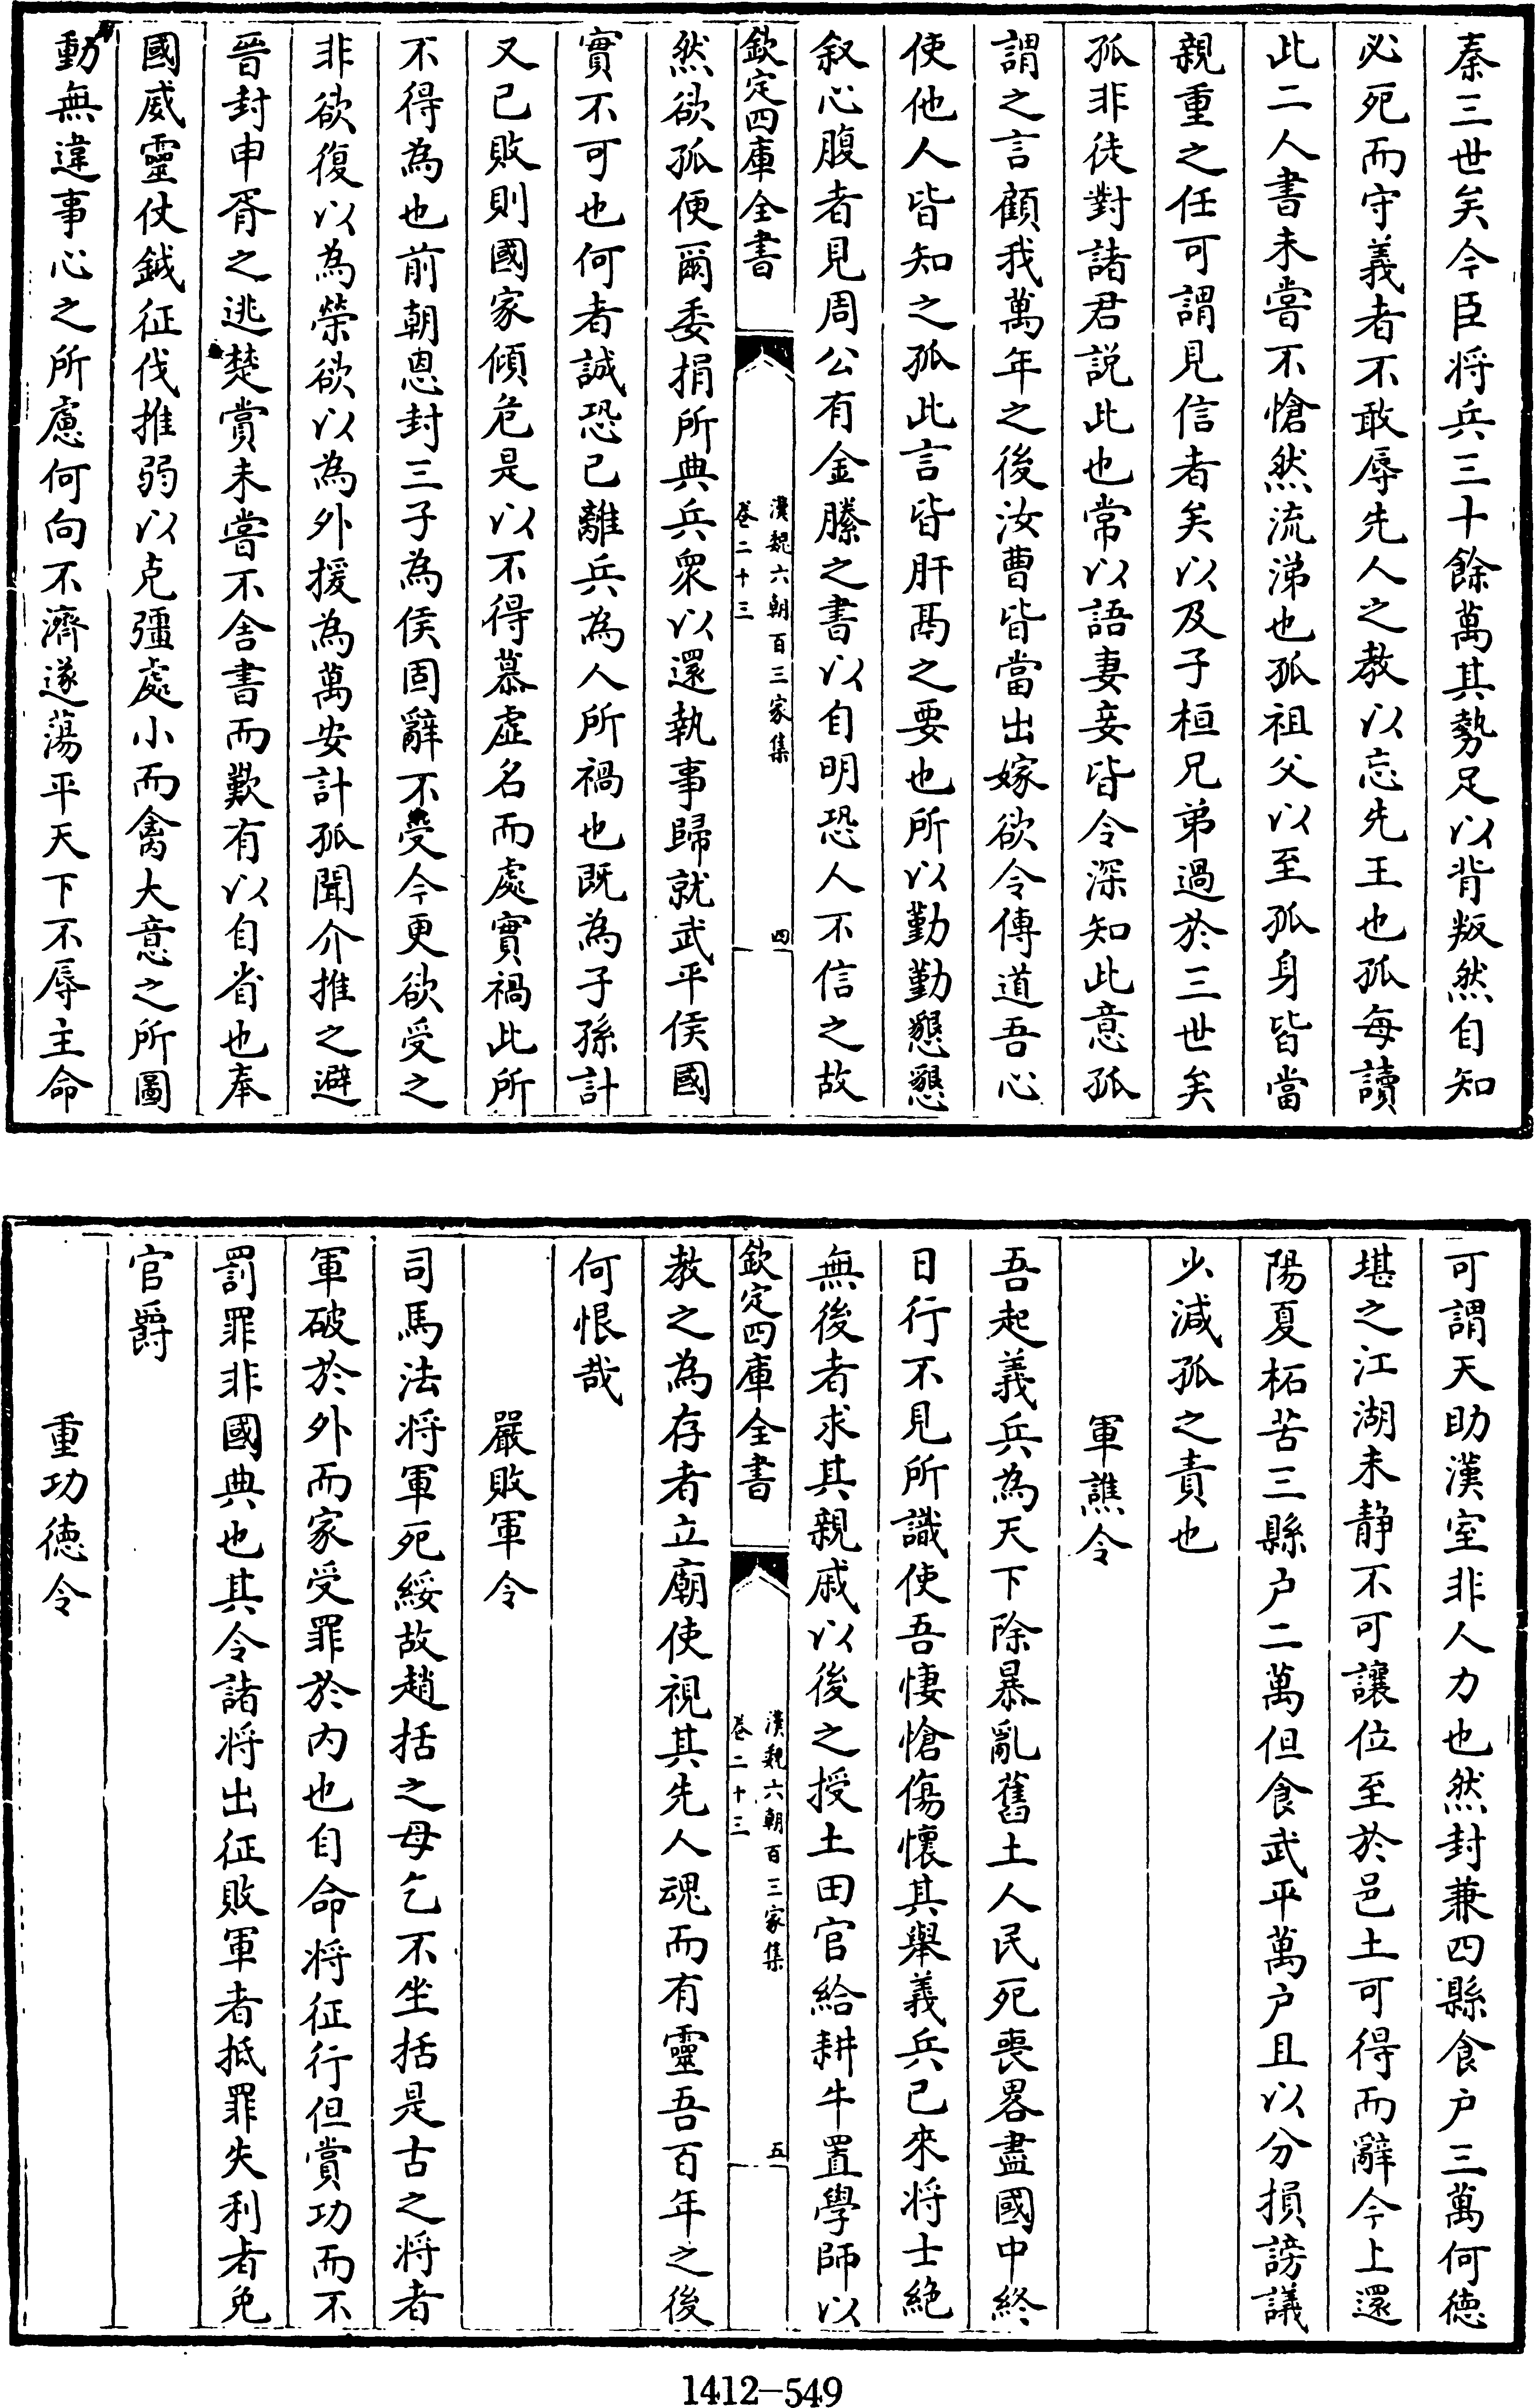 秦三世矣今臣将兵三十餘萬其勢足以背叛然自知
必死而守義者不敢辱先人之教以忘先王也孤每讀
此二人書未嘗不愴然流涕也孤祖父以至孤身皆當
親重之任可謂見信者矣以及子桓兄弟過於三世矣
孤非徒對諸君説此也常以語妻妾皆令深知此意孤
謂之言顧我萬年之後汝曹皆當出嫁欲令傳道吾心
使他人皆知之孤此言皆肝鬲之要也所以勤勤懇懇
叙心腹者見周公有金縢之書以自明恐人不信之故
欽定四庫全書
漢魏六朝百三家集
卷二十三
四
然欲孤便爾委捐所典兵衆以還執事歸就武平侯國
實不可也何者誠恐己離兵為人所禍也既為子孫計
又己敗則國家傾危是以不得慕虚名而處實禍此所
不得為也前朝恩封三子為侯固辭不受今更欲受之
非欲復以為榮欲以為外援為萬安計孤聞介推之避
晉封申胥之逃楚賞未嘗不舍書而歎有以自省也奉
國威靈仗鉞征伐推弱以克彊處小而禽大意之所圖
動無違事心之所慮何向不濟遂蕩平天下不辱主命
可謂天助漢室非人力也然封兼四縣食户三萬何徳
堪之江湖未静不可讓位至於邑土可得而辭今上還
陽夏柘苦三縣户二萬但食武平萬户且以分損謗議
少減孤之責也
軍譙令
吾起義兵為天下除暴亂舊土人民死喪畧盡國中終
日行不見所識使吾悽愴傷懷其舉義兵已來将士絶
無後者求其親戚以後之授土田官給耕牛置學師以
欽定四庫全書
漢魏六朝百三家集
卷二十三
五
教之為存者立廟使視其先人魂而有靈吾百年之後
何恨哉
嚴敗軍令
司馬法将軍死綏故趙括之母乞不坐括是古之将者
軍破於外而家受罪於内也自命将征行但賞功而不
罰罪非國典也其令諸将出征敗軍者抵罪失利者免
官爵
重功徳令
1412-549